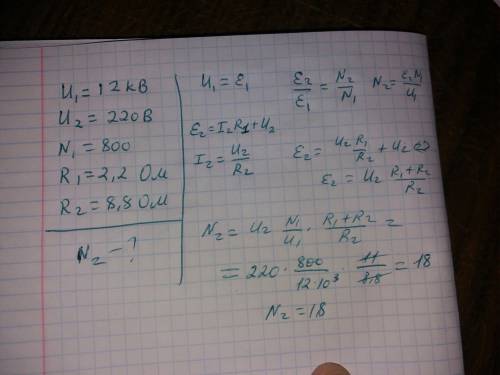 U₁ = 12 кВ
U₂ = 220 В
N₁ = 800
R₁ = 2,2 Ом
R₂ = 8,8 Ом
N₂ - ?
U₁ = ε₁
ε₂/ε₁ = N₂/N₁
N₂ = ε₂N₁/U₁
ε₂ = I₂R₁ + U₂
I₂ = U₂/R₂
ε₂ = U₂ R₁/R₂ + U₂ ⇔
ε₂ = U₂ (R₁+R₂)/R₂
N₂ = U₂ N₁/U₁ · (R₁+R₂)/R₂ =
= 220 · 800/12·10³ · 11/8,8 = 18
N₂ = 18